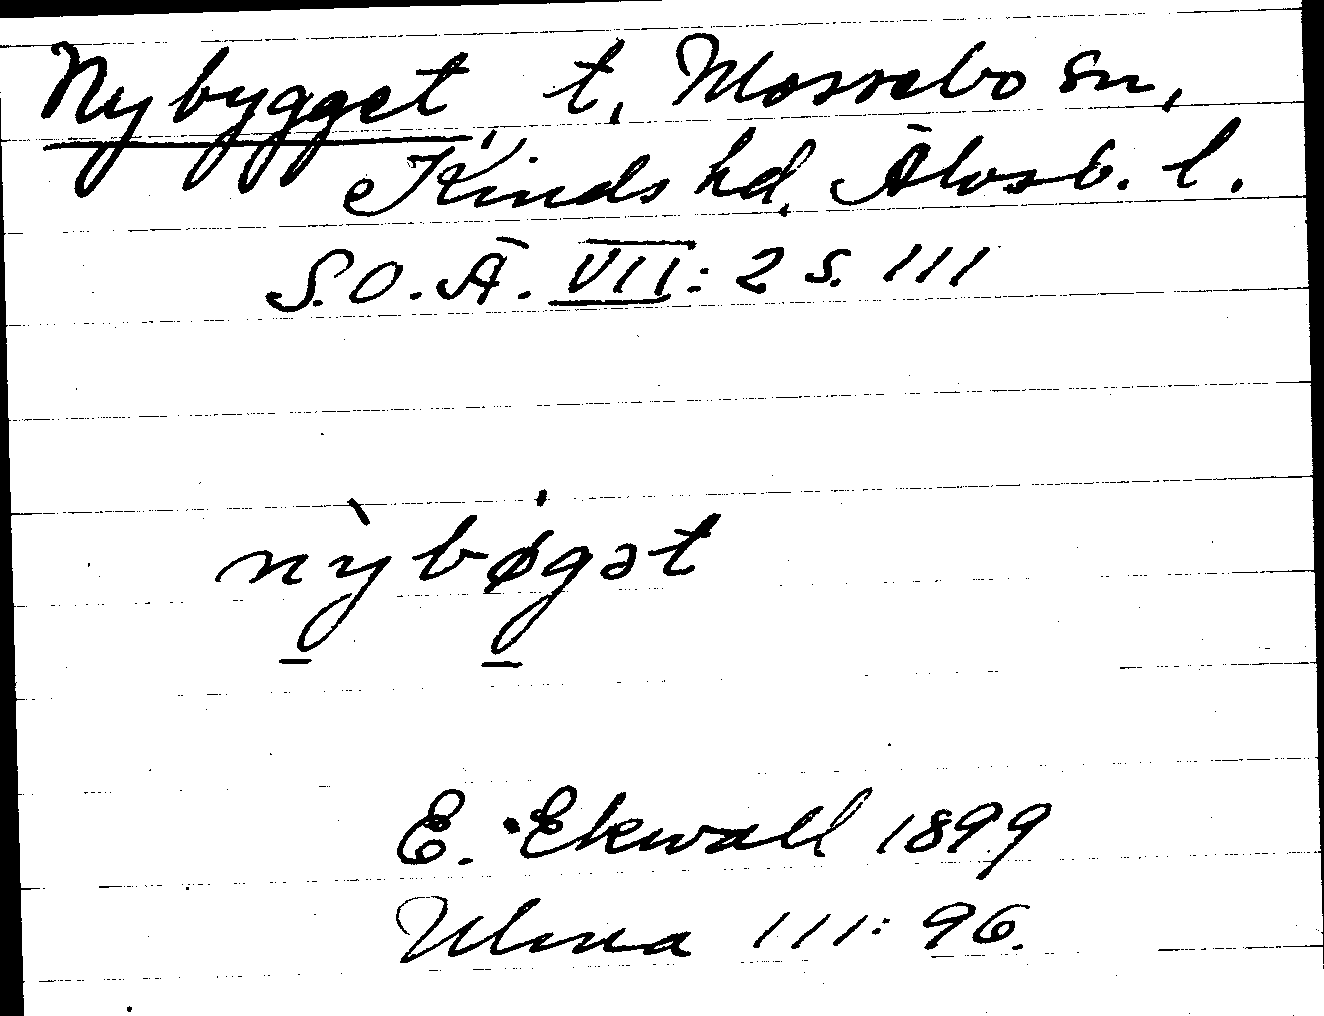 Nybygget, t. Mossebo sn,
Kinds hd, Älvsb. l.
S.O.Ä. VII: 2 s. 111
nỳbøgət
E. Ekwall 1899
Ulma 111: 96.